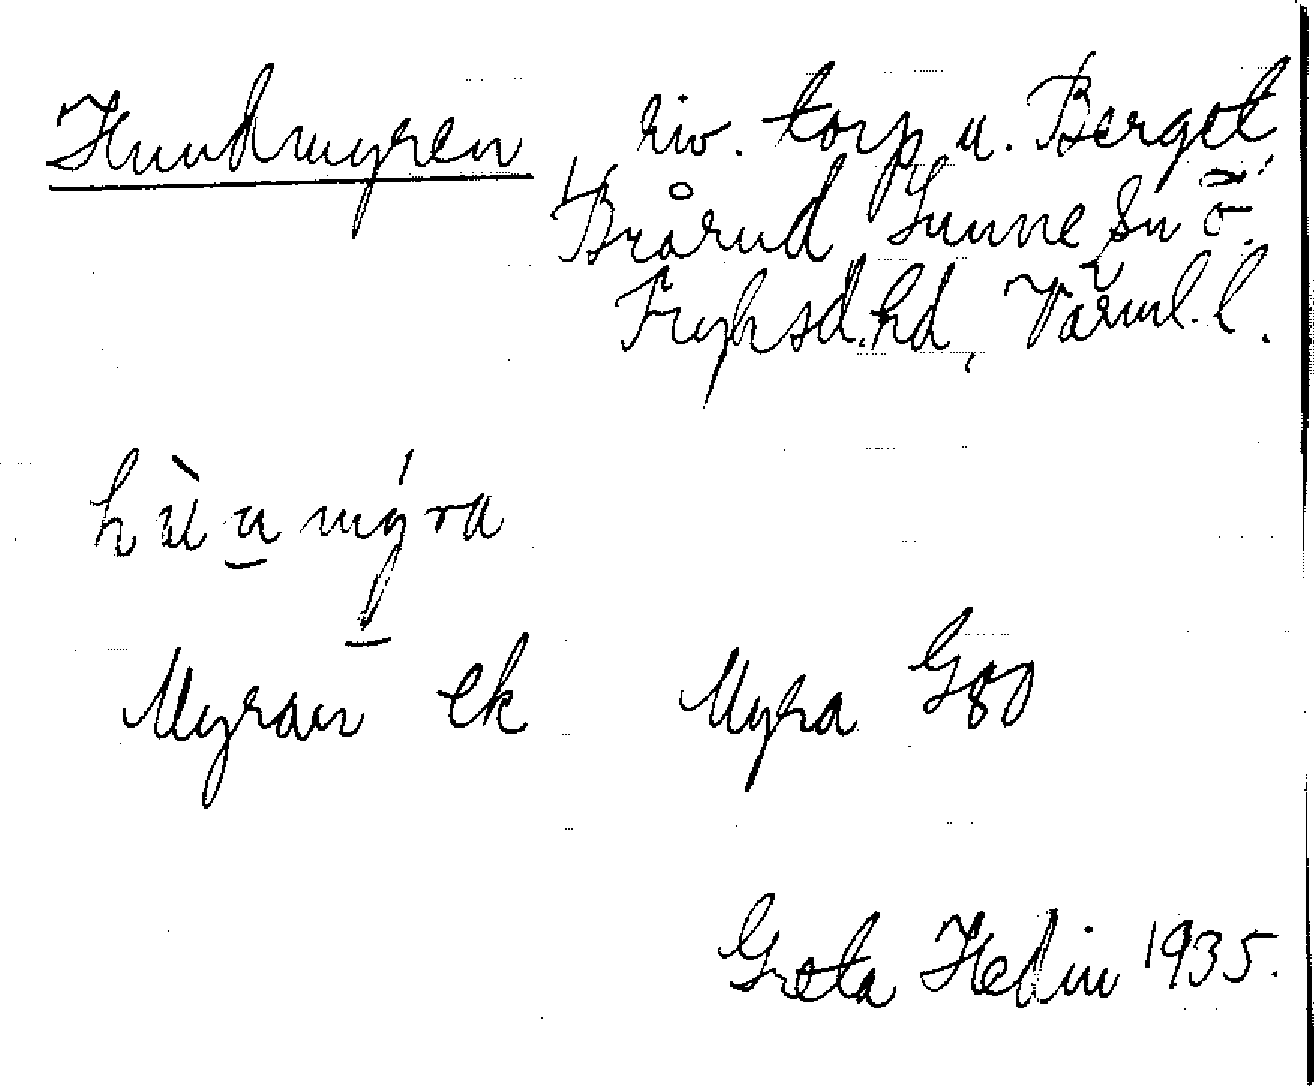 Hundmyren riv. torp u. Berget,
Brårud Sunne sn Ö.
Fryksd. hd, Värml. l.
hùnmýra
Myran ek Myra Ggo
Greta Hedin 1935.